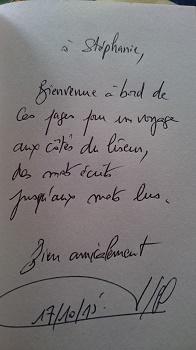 à Stéphanie,
Bienvenue à bord de
ces pages pour un voyage
aux côtés du liseur,
des mots écrits
jusqu'aux mots lus.
Bien amicalement
17/10/15.